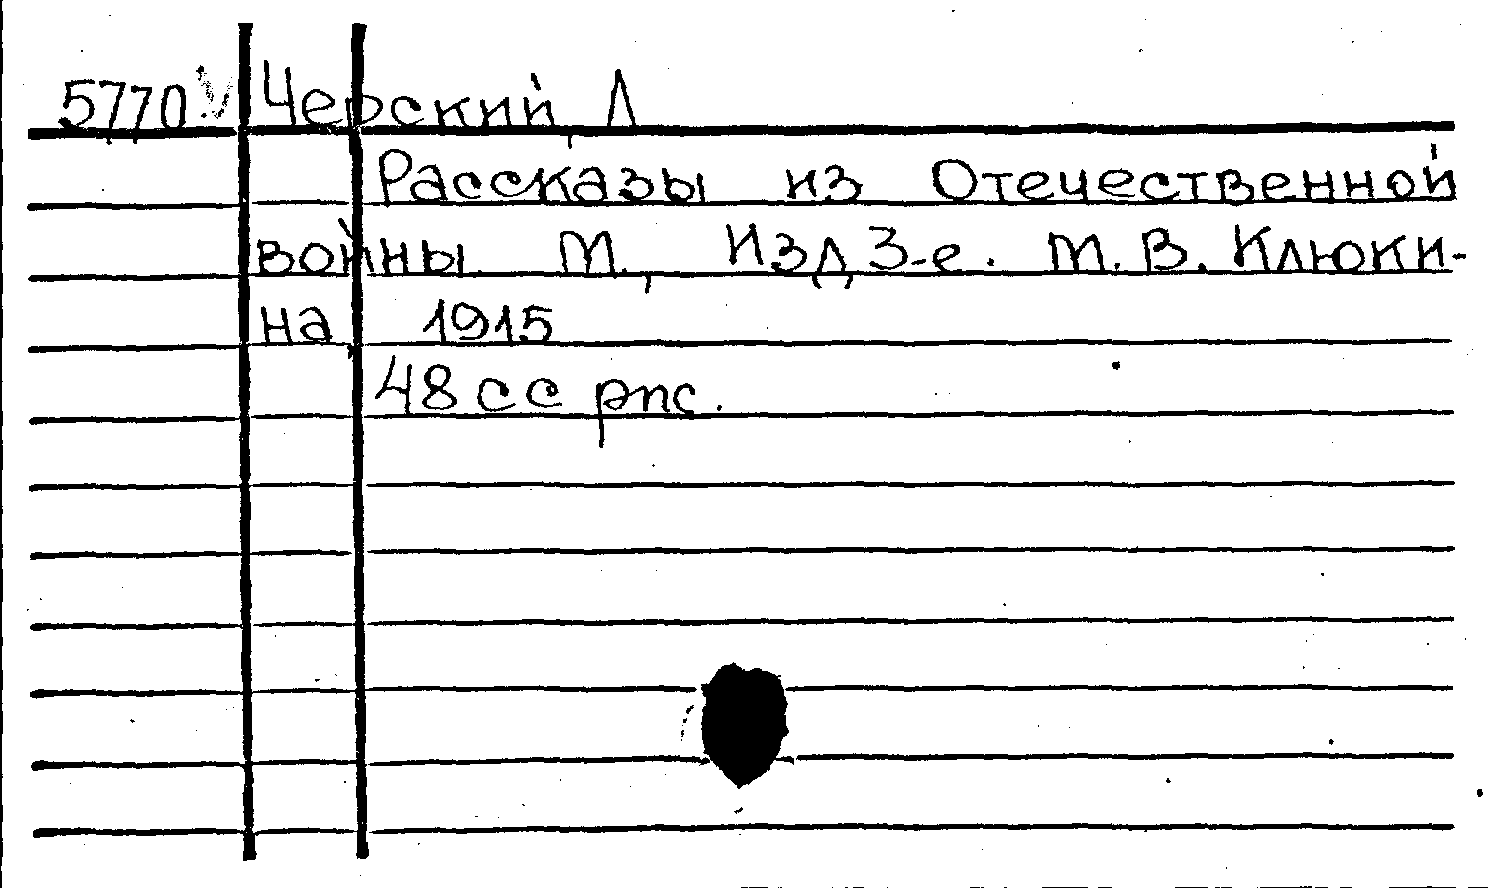 5770 Черский, Л
Рассказы из Отечественной
войны. М., Изд 3-е. М. В. Клюки-
на 1915
48 сс рис.